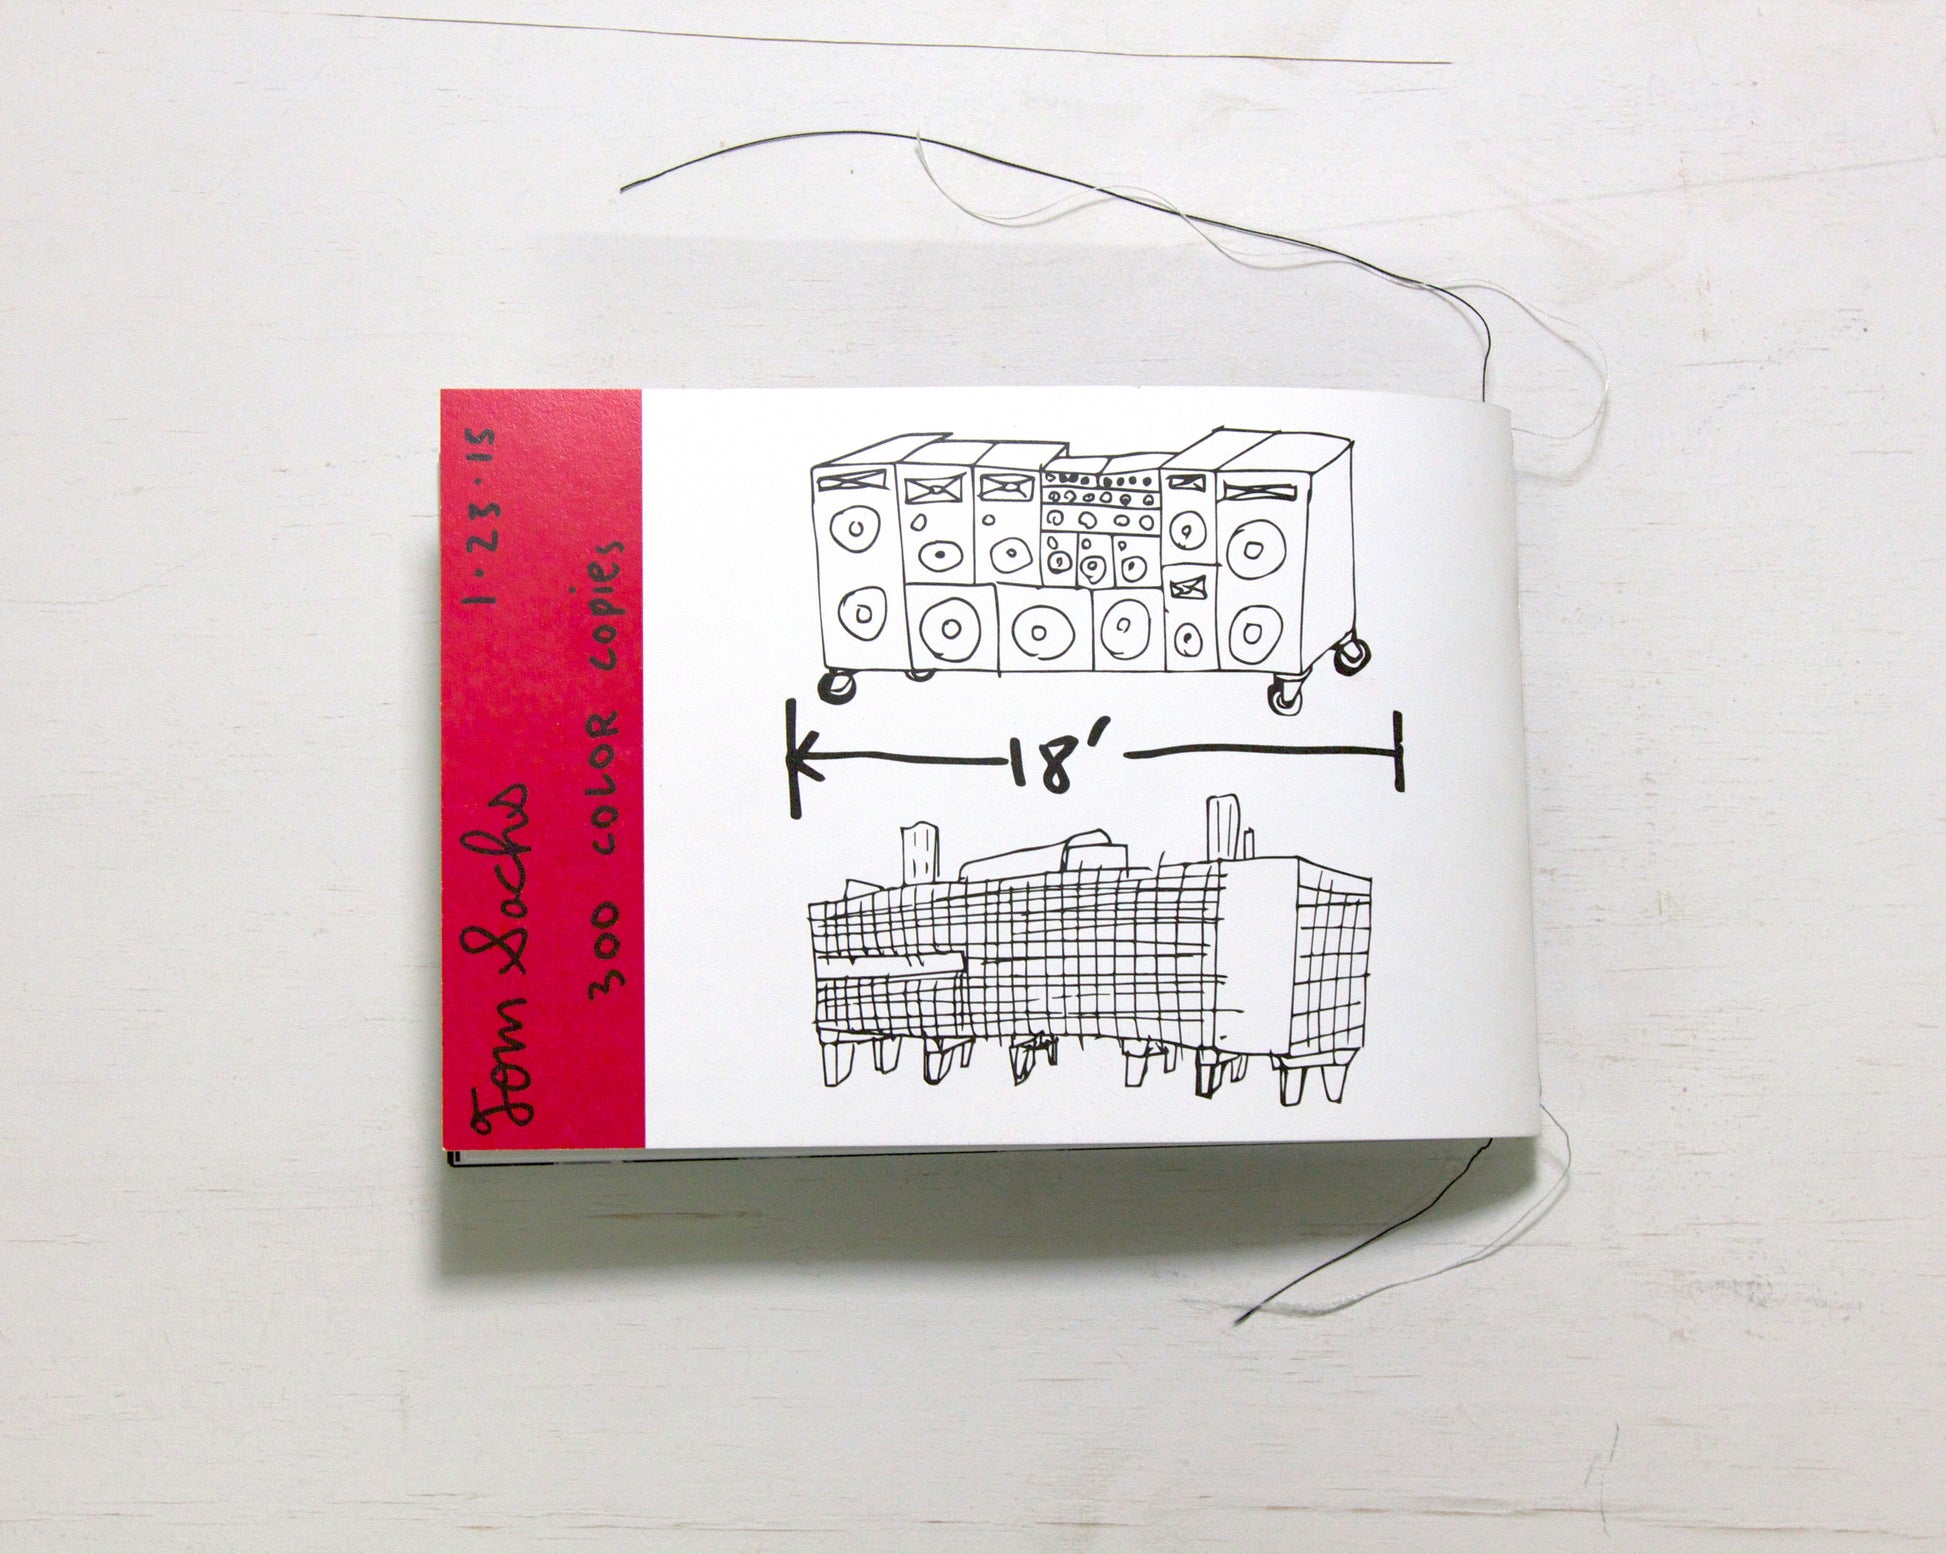 Tom Sachs 1·23·15
300 COLOR copies
18'